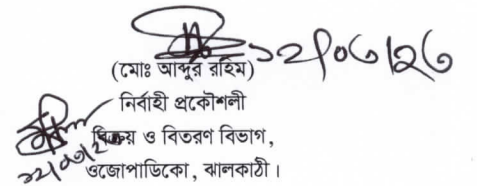 ১২/০৬/২৩
(মোঃ আব্দুর রহিম)
নির্বাহী প্রকৌশলী
বিক্রয় ও বিতরণ বিভাগ,
ওজোপাডিকো, ঝালকাঠী।